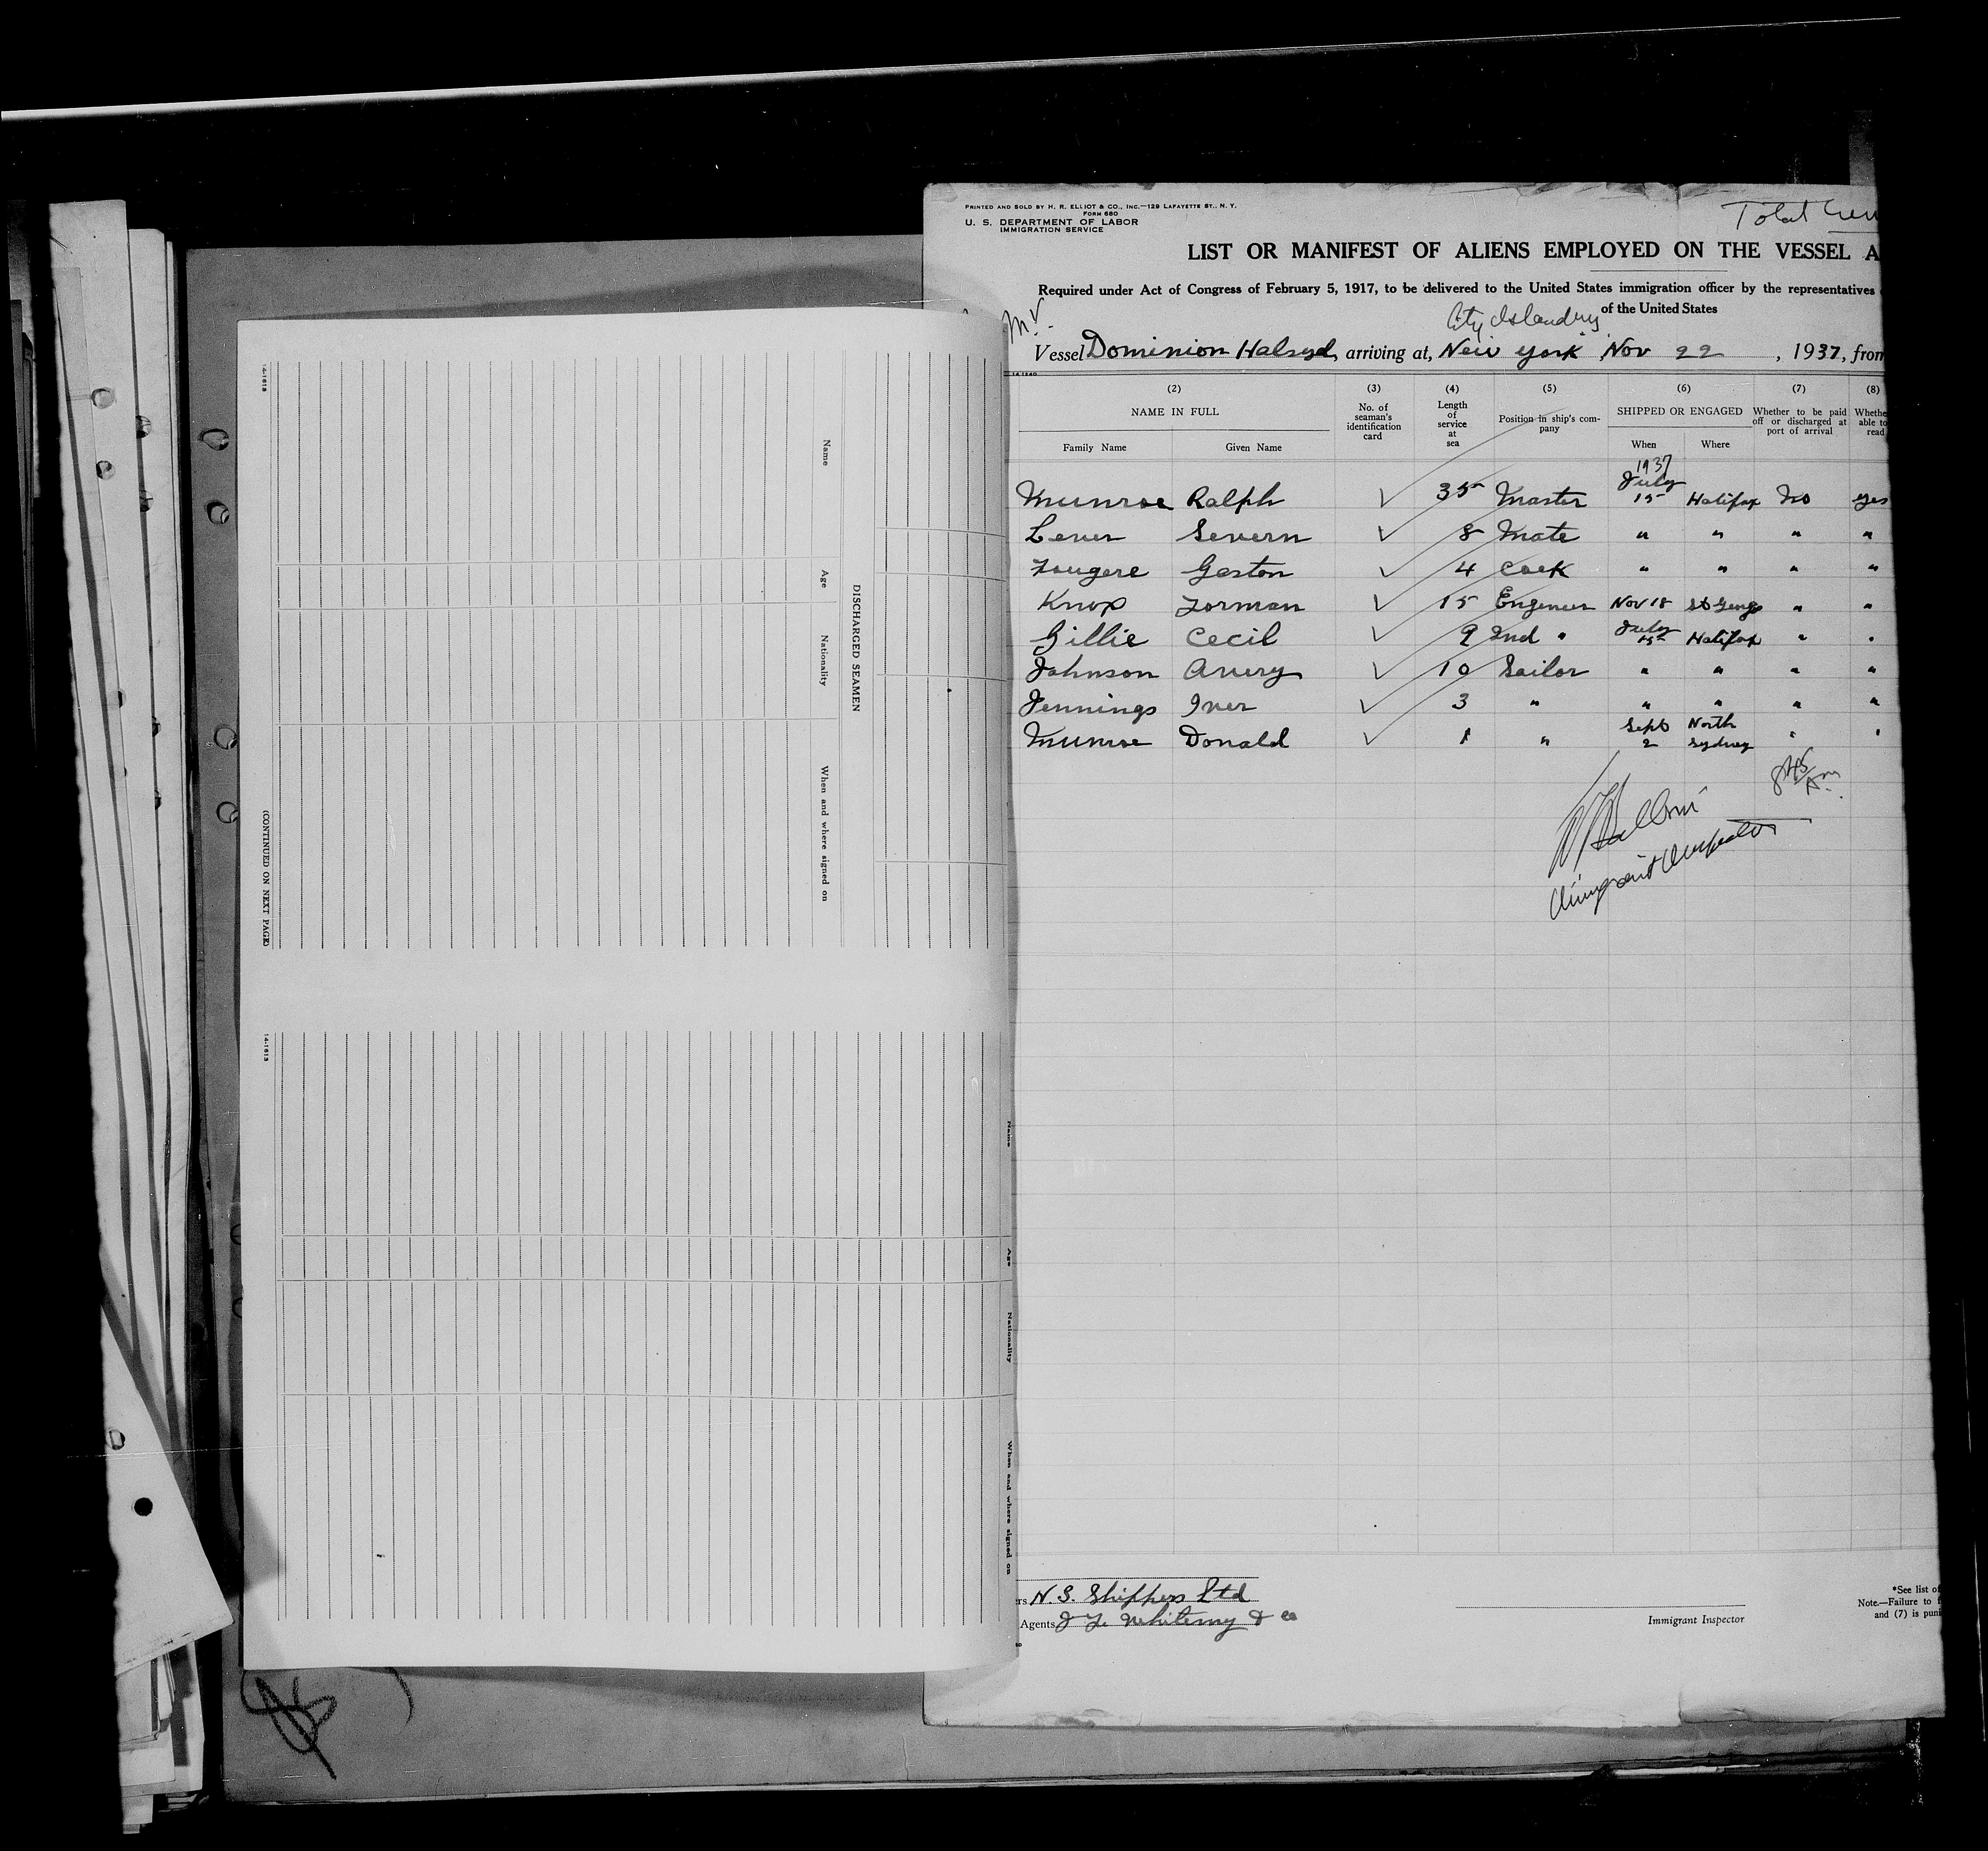 14-1613
Name
Age
Nationality
When and where signed on
DISCHARGED SEAMEN
(CONTINUED ON NEXT PAGE)
14-1613
Name
Age
Nationality
When and where signed on
PRINTED AND SOLD BY H. R. ELLIOT & CO., INC.—129 LAFAYETTE ST., N. Y.
FORM 680
U. S. DEPARTMENT OF LABOR
IMMIGRATION SERVICE
Total Crew
LIST OR MANIFEST OF ALIENS EMPLOYED ON THE VESSEL A
Required under Act of Congress of February 5, 1917, to be delivered to the United States immigration officer by the representatives
of the United States
City Island NY
M.V.
Vessel Dominion Halsyd, arriving at, New York Nov 22, 1937, from
(2) (3) (4) (5) (6) (7) (8)
NAME IN FULL No. of seaman's identification card Length of service at sea Position in ship's company SHIPPED OR ENGAGED Whether to be paid off or discharged at port of arrival Whethe able to read
Family Name Given Name When Where
1937
Munroe Ralph 35 Master July 15 Halifax No yes
Lever Severn 8 Mate " " " "
Fougere Gaston 4 Cook " " " "
Knox Forman 15 Engineer Nov 18 " "
Gillie Cecil 9 2nd " July 15 Halifax " "
Johnson Avery 10 Sailor " " " "
Jennings Iver 3 " " " " "
Munroe Donald 1 " Sept 2 North Sydney " "
8 45 Am
Immigrant Inspector
rs N. S. Shippers Ltd
Agents J F Whitney & Co
Immigrant Inspector
*See list of
Note.—Failure to f
and (7) is puni